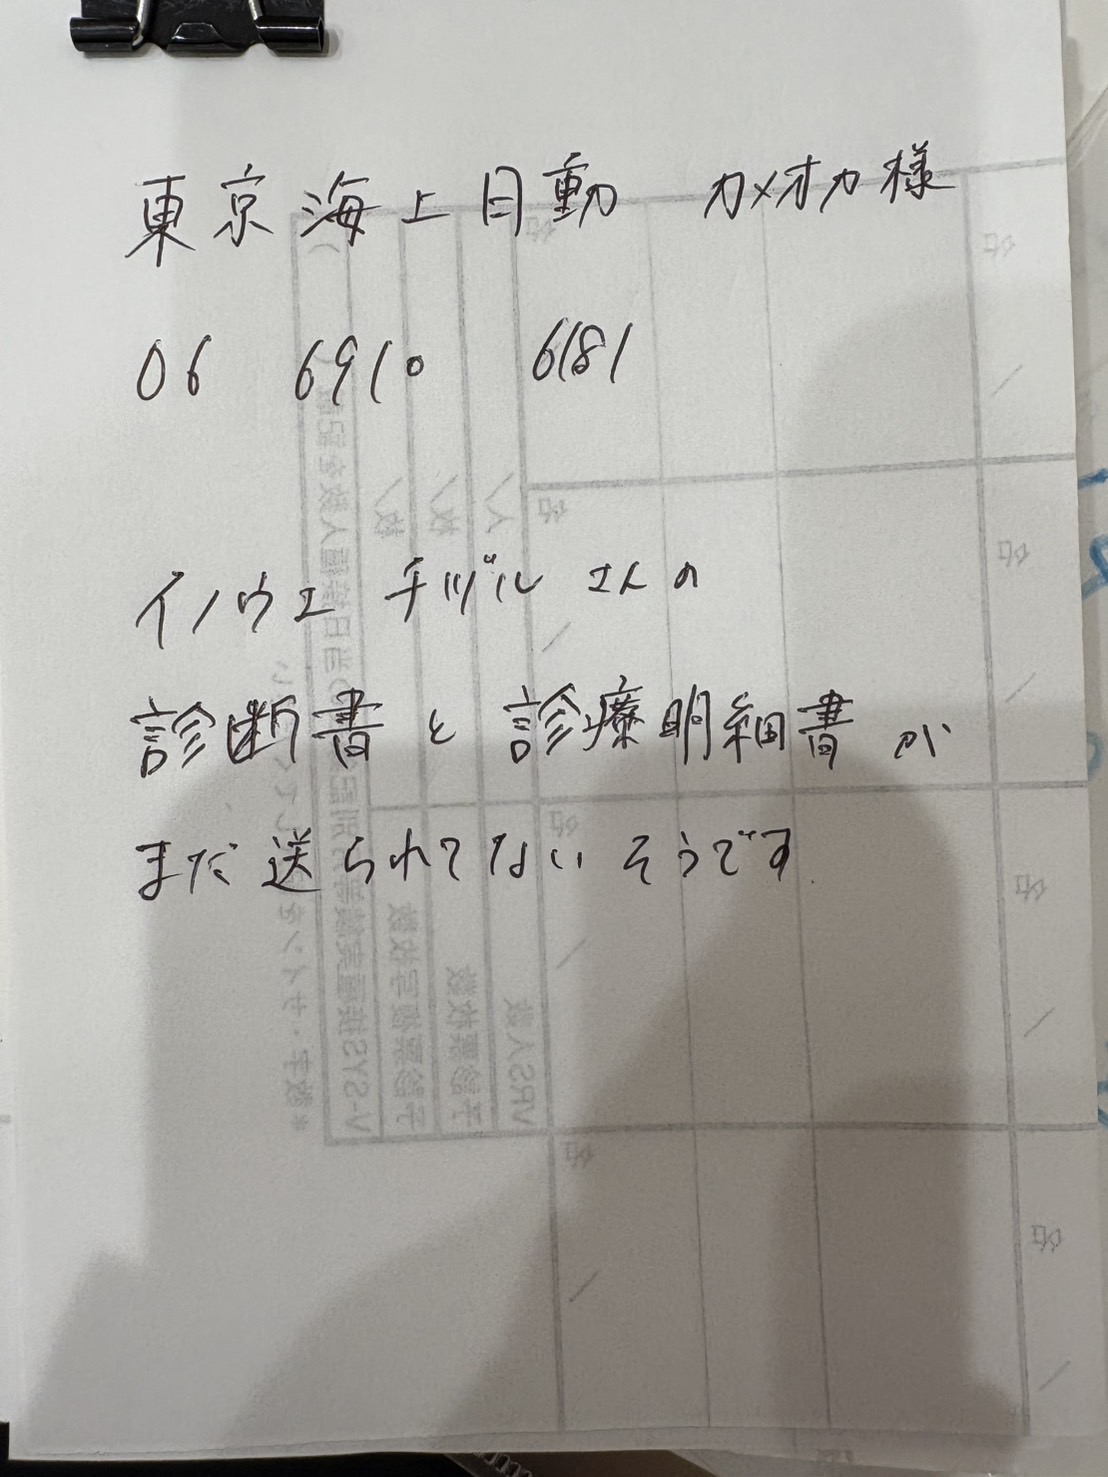 東京海上日動 カメオカ様
06 6910 6181
イノウエ チヅル さんの
診断書と診療明細書が
まだ送られてないそうです.